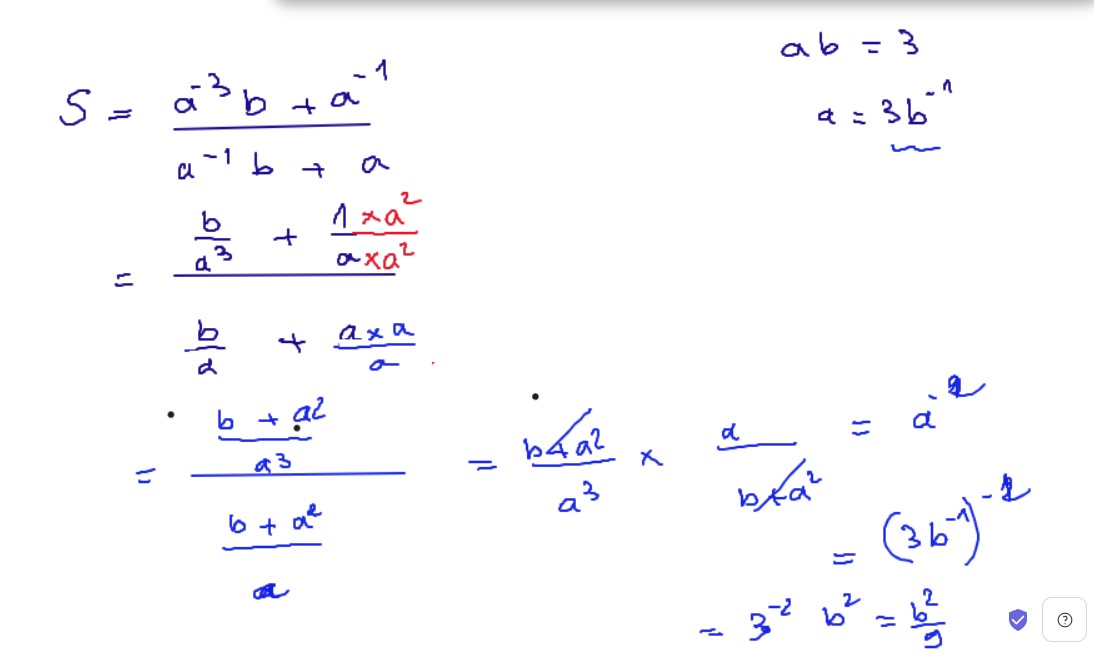 ab = 3
a = 3b⁻¹
S = (a⁻³b + a⁻¹) / (a⁻¹b + a)
= (b/a³ + (1×a²)/(a×a²)) / (b/a + (a×a)/a)
= ((b + a²)/a³) / ((b + a²)/a) = (b+a²)/a³ × a/(b+a²) = a⁻²
= (3b⁻¹)⁻²
= 3⁻² b² = b²/9